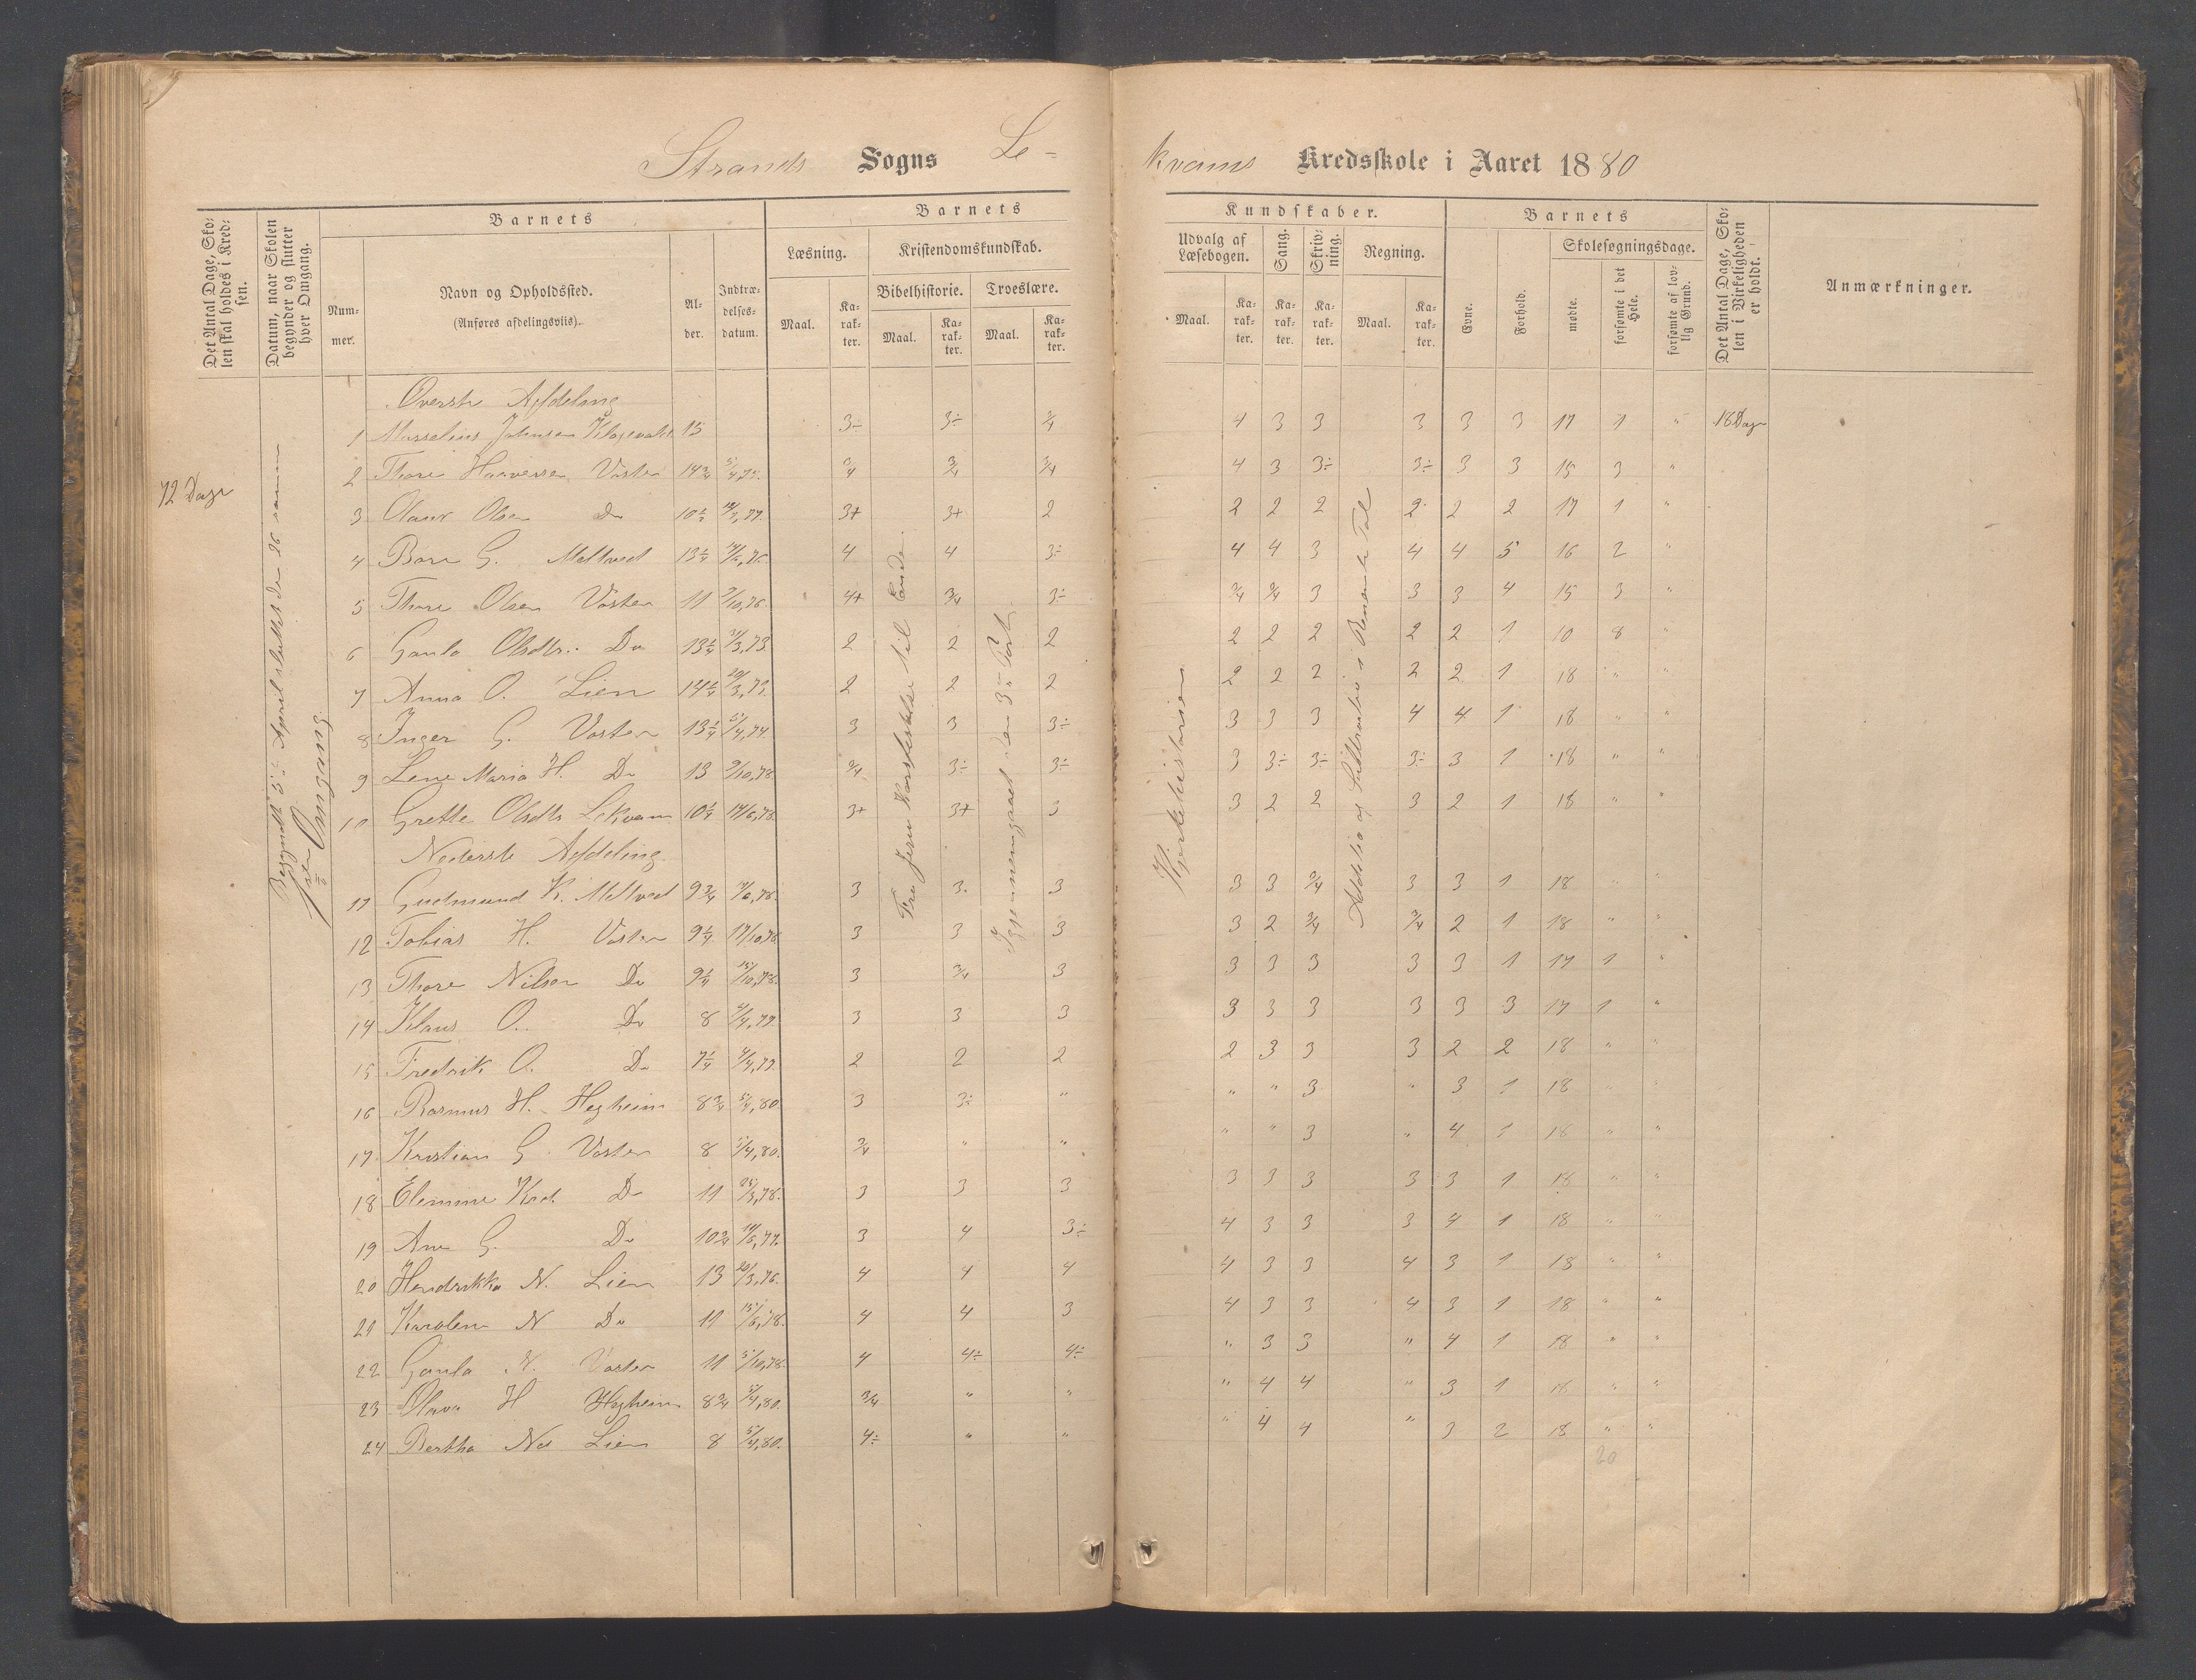 Strands Sogns Le-
kvams Kredsskole i Aaret 1880
Det Antal Dage, Skolen skal holdes i Kredsen.
Datum, naar Skolen begynder og slutter hver Omgang.
Barnets
Nummer.
Navn og Opholdssted.
(Anføres afdelingsviis).
Alder.
Indtrædelsesdatum.
Barnets
Læsning.
Kristendomskundskab.
Bibelhistorie.
Troeslære.
Maal.
Karakter.
Maal.
Karakter.
Maal.
Karakter.
Kundskaber.
Udvalg af Læsebogen.
Sang.
Skrivning.
Regning.
Maal.
Karakter.
Karakter.
Karakter.
Maal.
Karakter.
Barnets
Evne.
Forhold.
Skolesøgningsdage.
mødte.
forsømte i det Hele.
forsømte af lovlig Grund.
Det Antal Dage, Skolen i Virkeligheden er holdt.
Anmærkninger.
72 Dage
Begyndte 5te April sluttet den 26 samme
1ste Omgang
Fra Jesu Korsfestelse til Ende.
Igjennemgaaet den 3die Part.
Kirkehistorien
Addition og Subtraktion i Benævnte Tal
Øverste Afdeling
1 15 3÷ 3÷ 3/4 4 3 3 3 3 3 17 1 " 18 Dage
2 Thore Haaversen Vösten 14 3/4 3/4 3/4 3/4 4 3 3÷ 3÷ 3 3 15 3 "
3 Olaus Olsen Do 10 1/2 3+ 3+ 2 2 2 2 2 2 2 17 1 "
4 Baar G. Meltveit 13 1/4 4 4 3÷ 4 4 3 4 4 5 16 2 "
5 Thore Olsen Vösten 11 4+ 3/4 3÷ 3/4 3/4 3 3 3 4 15 3 "
6 Gunla Olsdtr. Do 13 1/4 2 2 2 2 2 2 2 2 1 10 8 "
7 Anna O. Lien 14 1/4 2 2 2 2 2 2 2 2 1 18 " "
8 Inger G. Vösten 13 1/4 3 3 3÷ 3 3 3 4 4 1 18 " "
9 Lene Maria H. Do 13 9/10,78. 3/4 3÷ 3÷ 3 3÷ 3÷ 3÷ 3 1 18 " "
10 Grette Olsdtr Lekvam 10 1/4 17/6,78. 3+ 3+ 3 3 2 2 3 2 1 18 " "
Nederste Afdeling
11 Gudmund K. Meltveit 9 3/4 3 3 3 3 3 3/4 3 3 1 18 " "
12 Tobias H. Vösten 9 1/4 3 3 3 3 2 3/4 3/4 2 1 18 " "
13 Thore Nilsen Do 9 1/4 15/10,78. 3 3/4 3 3 3 3 3 3 1 17 1 "
14 Klaus O. Do 8 3 3 3 3 3 3 3 3 3 17 1 "
15 Fredrik O. Do 7 1/4 2 2 2 2 3 3 3 2 2 18 " "
16 Rasmus H. Hegheim 8 3/4 5/4,80 3 3÷ " " " 3 " 3 1 18 " "
17 Kristian G. Vosten 8 5/4,80. 3/4 " " " " 3 " 4 1 18 " "
18 Do 11 25/3,78. 3 3 3 3 3 3 3 3 1 18 " "
19 Ane G. Do 10 3/4 3 4 3÷ 4 3 3 3 4 1 18 " "
20 Hendrikka N. Lien 13 20/3,76. 4 4 4 4 3 3 4 3 1 18 " "
21 Karolene N Do 11 15/6,78. 4 4 3 4 3 3 4 3 1 18 " "
22 Gunla N. Vosten 11 5/10,78. 4 4÷ 4÷ " 3 3 " 4 1 18 " "
23 Olava H Hegheim 8 3/4 5/4,80. 3/4 " " " 4 4 " 3 1 18 " "
24 Bertha Nd Lien 8 5/4,80. 4÷ " " " 4 4 " 3 2 18 " "
20